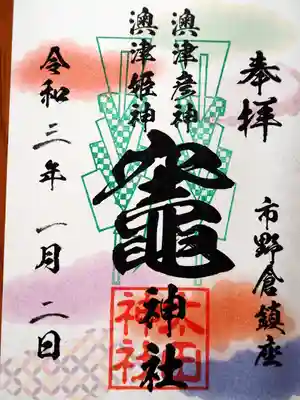 奉拝
市野倉鎮座
澳津彦神
澳津姫神
竈神社
令和三年一月二日